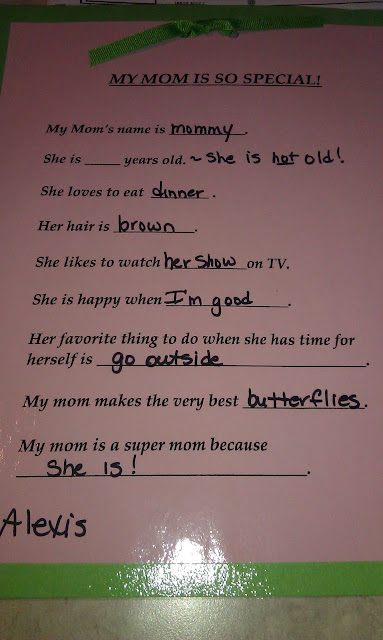 MY MOM IS SO SPECIAL!
My Mom's name is mommy.
She is ____ years old. ~ She is not old!
She loves to eat dinner.
Her hair is brown.
She likes to watch her show on TV.
She is happy when I'm good.
Her favorite thing to do when she has time for
herself is go outside.
My mom makes the very best butterflies.
My mom is a super mom because
She is!.
Alexis